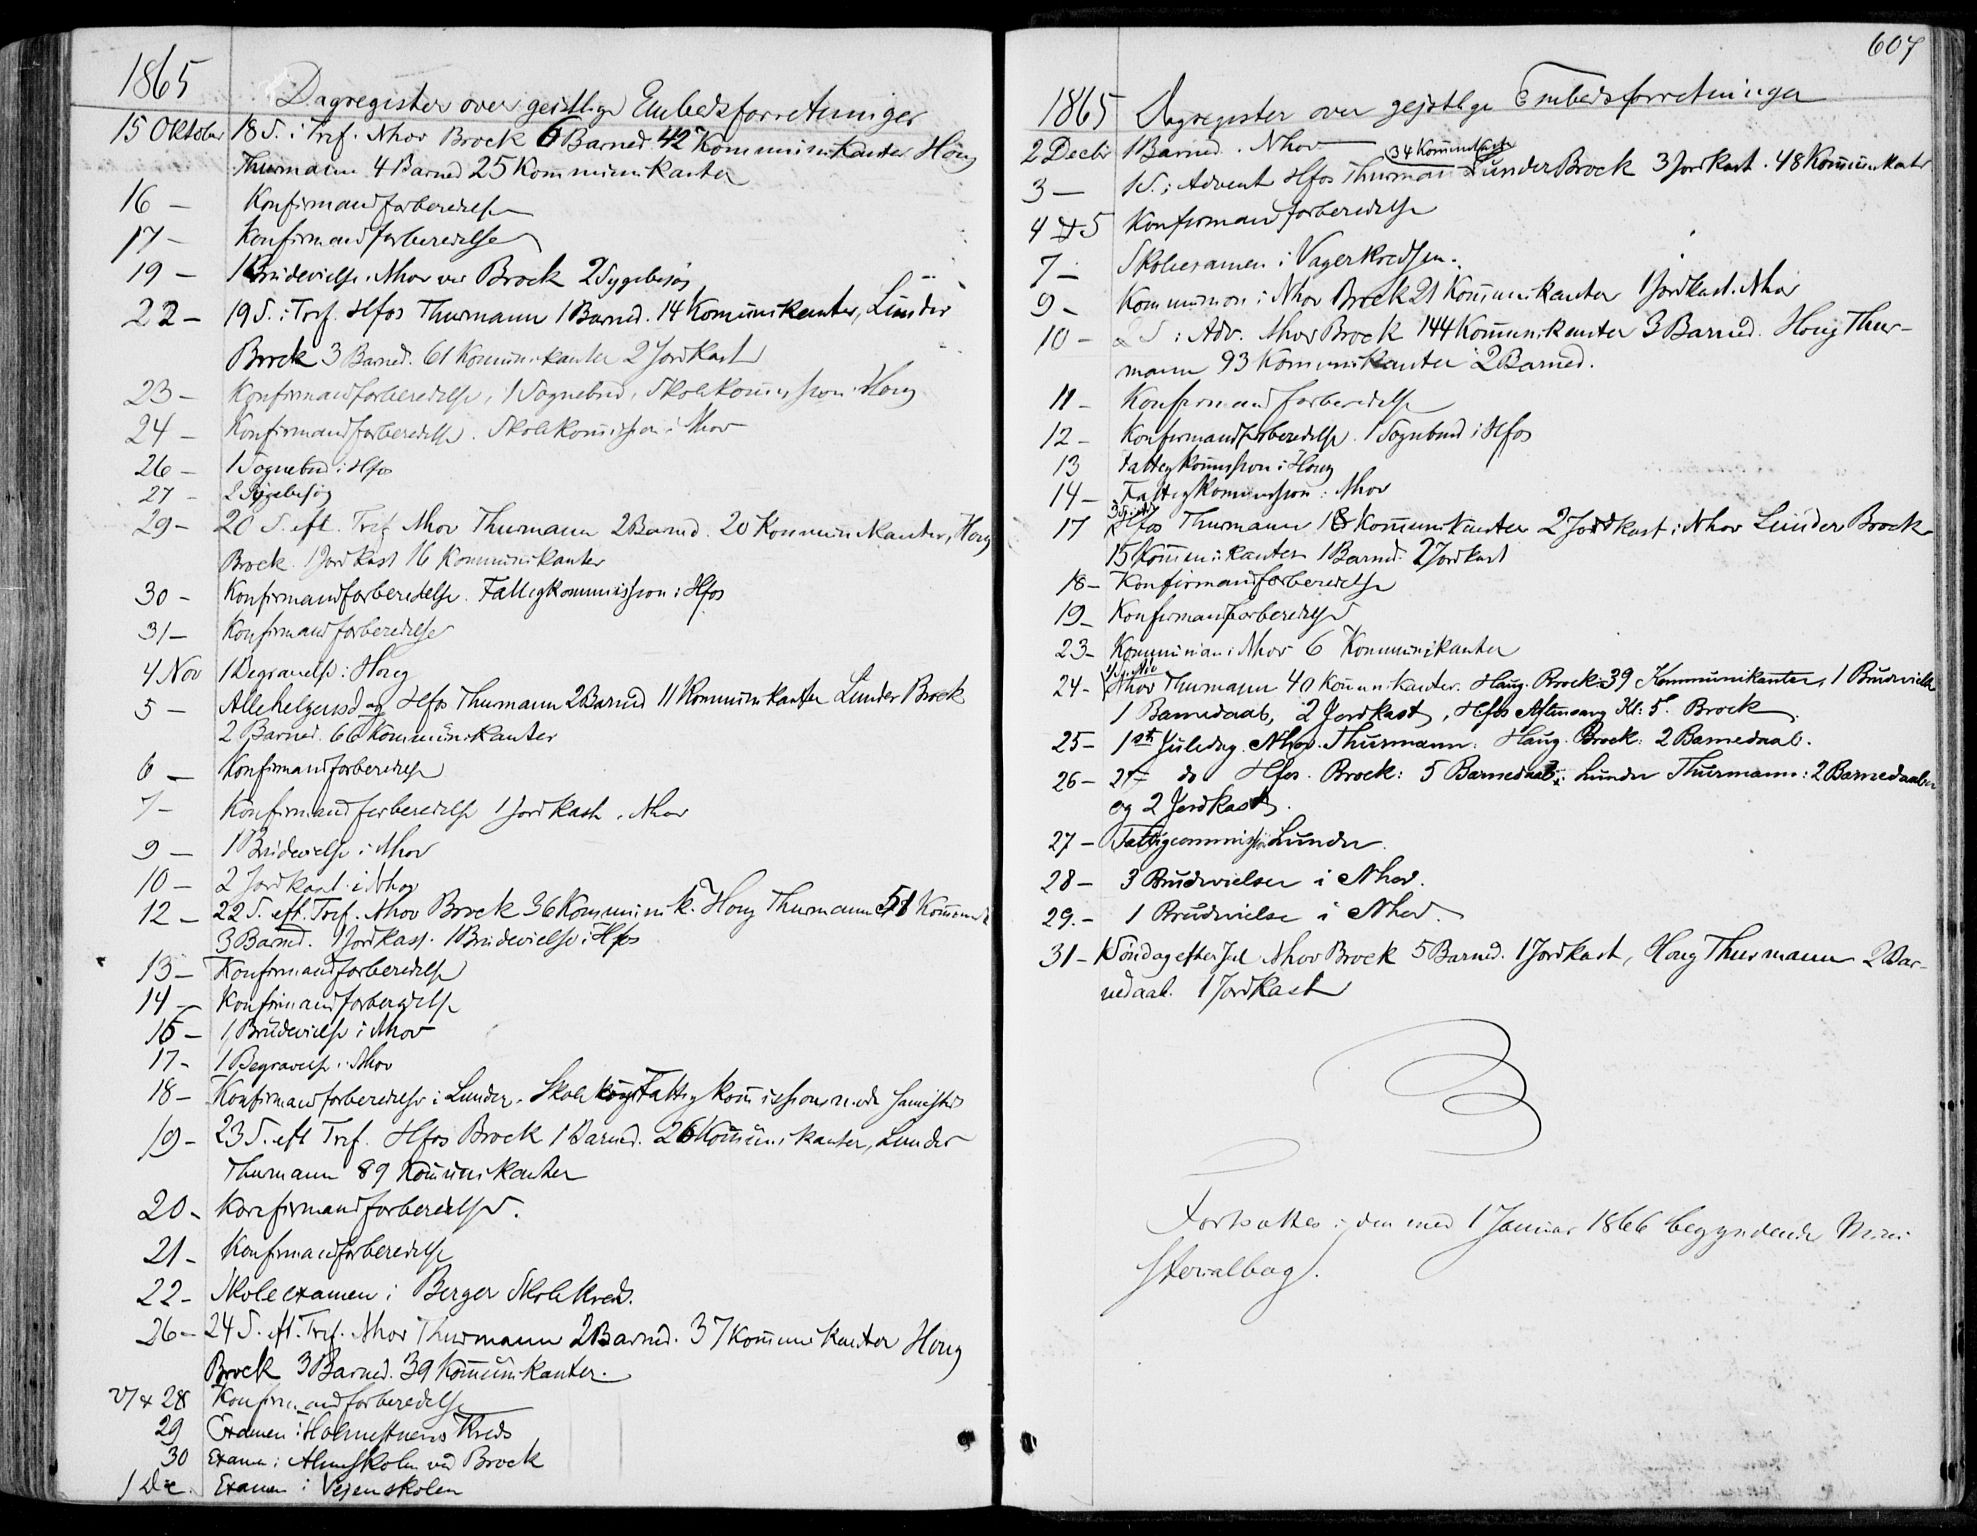 1865 Dagregister over geistlige Embedsforretninger
15 Oktober 18 S. i Tref. Nhov Brock 6 Barned. 42 Kommunikanter Houg
Thurmann 4 Barned 25 Kommunikanter
16 – Konfirmandforberedelse
17 – Konfirmandforberedelse
19 – 1 Brudevielse i Nhov ved Brock 2 Sygebesøg
22 – 19 S. i Tref. Hfos Thurmann 1 Barned. 14 Komunikanter, Lunder
Brock 3 Barned. 61 Kommunikanter 2 Jordkast
23 – Konfirmandforberedelse, 1 Sognebud, Skolekommission i Houg
24 – Konfirmandforberedelse. Skolekommission i Nhov
26 – 1 Sognebud i Hfos
27 – 2 Sygebesøg
29 – 20 S. eft. Tref Nhov Thurmann 2 Barned. 20 Kommunikanter, Houg
Brock. 1 Jordkast 16 Kommunikanter
30 – Konfirmandforberedelse. Fattigkommission i Hfos
31 – Konfirmandforberedelse
4 Nov 1 Begravelse i Houg
5 – Allehelgensdag Hfos Thurmann 2 Barned 11 Kommunikanter Lunder Brock
2 Barned. 66 Kommunikanter
6 – Konfirmandforberedelse
7 – Konfirmandforberedelse 1 Jordkast i Nhov
9 – 1 Brudevielse i Nhov
10 – 2 Jordkast i Nhov
12 – 22 S. eft. Tref. Nhov Brock 36 Kommunik. Houg Thurmann 51 Kommunik
3 Barned. 1 Jordkast. 1 Brudevielse i Hfos
13 – Konfirmandforberedelse
14 – Konfirmandforberedelse
16 – 1 Brudevielse i Nhov
17 – 1 Begravelse i Nhov
18 – Konfirmandforberedelse i Lunder. Skole Fattigkommissionsmøde
19 – 23 S. eft Tref. Hfos Brock 1 Barned. 26 Kommunikanter, Lunder
Thurmann 89 Kommunikanter
20 – Konfirmandforberedelse.
21 – Konfirmandforberedelse
22 – Skoleexamen i Berger Skolekreds.
26 – 24 S. eft. Tref. Nhov Thurmann 2 Barned. 37 Kommunikanter Houg
Brock 3 Barned. 39 Kommunikanter.
27 & 28 Konfirmandforberedelse
29 Examen i Kreds
30 Examen i Almueskolen ved Brock
1 Dec. Examen i Vejenskolen
607
1865 Dagregister over gejstlige Embedsforretninger
2 Decbr 1 Barned. i Nhov
34 Kommunikanter
3 – 1 S. i Advent Hfos Thurman Lunder Brock 3 Jordkast. 48 Kommunikanter
4 & 5 Konfirmandforberedelse
7 – Skoleexamen i Vagerkredsen.
9 – Kommunion i Nhov Brock 21 Kommunikanter 1 Jordkast i Nhov
10 – 2 S. i Adv. Nhov Brock 144 Kommunikanter 3 Barned. Houg Thur-
mann 93 Kommunikanter 2 Barned.
11 – Konfirmandforberedelse
12 – Konfirmandforberedelse. 1 Sognebud i Hfos
13 Fattigkommission i Houg
14 – Fattigkommission i Nhov
17 Hfos Thurmann 18 Kommunikanter 2 Jordkast i Nhov Lunder Brock
15 Kommunikanter 1 Barned. 2 Jordkast
18 – Konfirmandforberedelse
19 – Konfirmandforberedelse
23 – Kommunion i Nhov 6 Kommunikanter
24 – Nhov Thurmann 40 Kommunikanter. Haug. Brock: 39 Kommunikanter, 1 Brudevielse
1 Barnedaab, 2 Jordkast, Hfos Aftensang Kl: 5. Brock.
25 – 1ste Juledag. Nhov. Thurmann: Haug. Brock: 2 Barnedaab.
26 – 2den do Hfos. Brock: 5 Barnedaab. Lunder Thurmann: 2 Barnedaab
og 2 Jordkast.
27 – Fattigcommission Lunder.
28 – 3 Brudevielser i Nhov.
29. – 1 Brudevielse i Nhov.
31 – Søndag efter Jul Nhov Brock 5 Barned. 1 Jordkast, Houg Thurmann 2 Bar-
nedaab. 1 Jordkast
Fortsættes i den med 1 Januar 1866 begyndende Mini-
sterialbog.